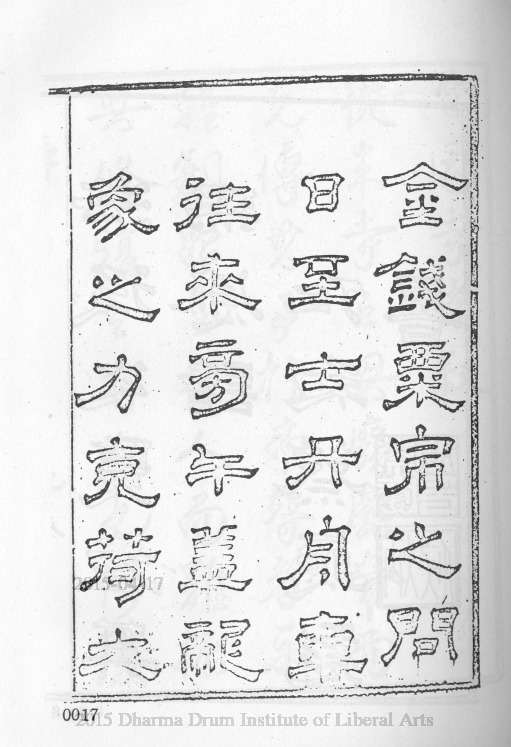 金錢粟宗之問
日至士丹車
往來旁午蓋龍
象之力克荷大
2015-09-17
0017
2015 Dharma Drum Institute of Liberal Arts